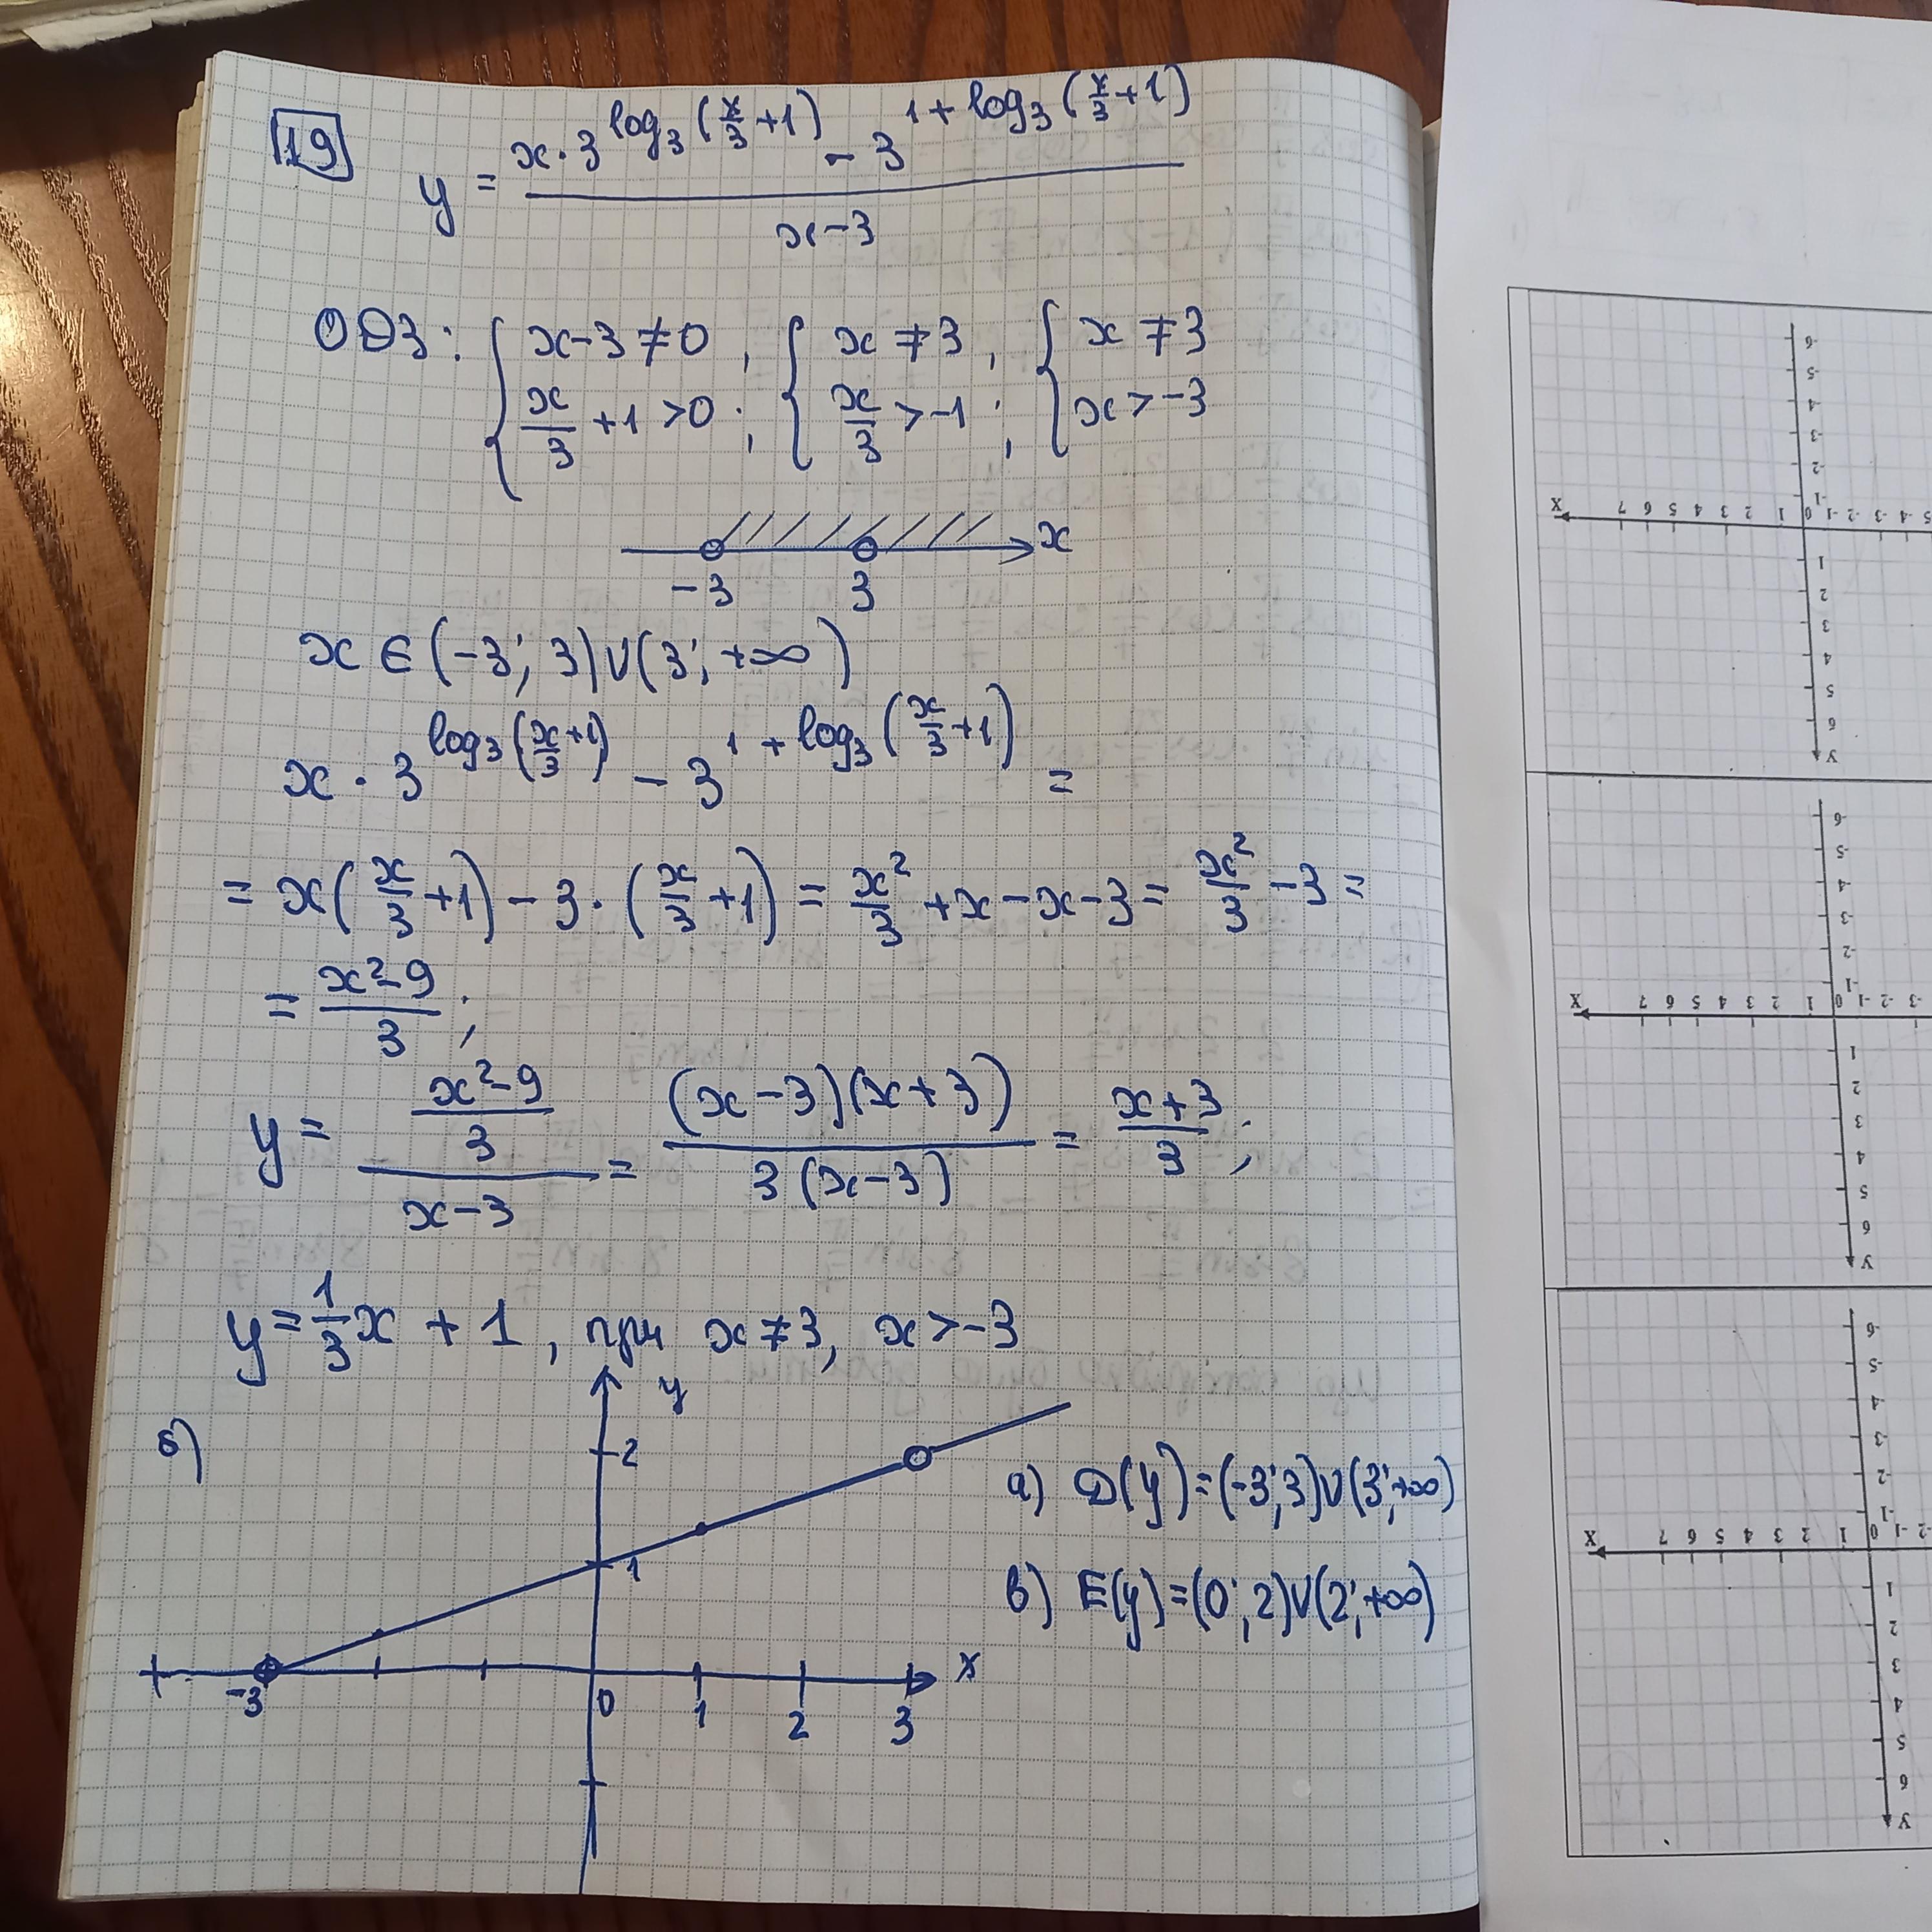 19 y = (x·3^(log₃(x/3+1)) - 3^(1+log₃(x/3+1)))/(x-3)
ОДЗ: { x-3≠0, { x≠3, { x≠3
x/3+1>0; x/3>-1; x>-3
x
-3 3
x∈(-3; 3)∪(3; +∞)
x·3^(log₃(x/3+1)) - 3^(1+log₃(x/3+1)) =
= x(x/3+1) - 3·(x/3+1) = x²/3+x-x-3 = x²/3-3 =
= (x²-9)/3;
y = ((x²-9)/3)/(x-3) = ((x-3)(x+3))/(3(x-3)) = (x+3)/3;
y = 1/3x + 1, при x≠3, x>-3
б) y
2
1
-3 0 1 2 3 x
а) D(y)=(-3;3)∪(3;+∞)
в) E(y)=(0;2)∪(2;+∞)
-6
-5
-4
-3
-2
-1
X 7 6 5 4 3 2 1 0 -1 -2 -3 -4 -5
1
2
3
4
5
6
У
-6
-5
-4
-3
-2
-1
X 7 6 5 4 3 2 1 0 -1 -2 -3
1
2
3
4
5
6
У
-6
-5
-4
-3
-2
-1
X 7 6 5 4 3 2 1 0 -1 -2
1
2
3
4
5
6
У